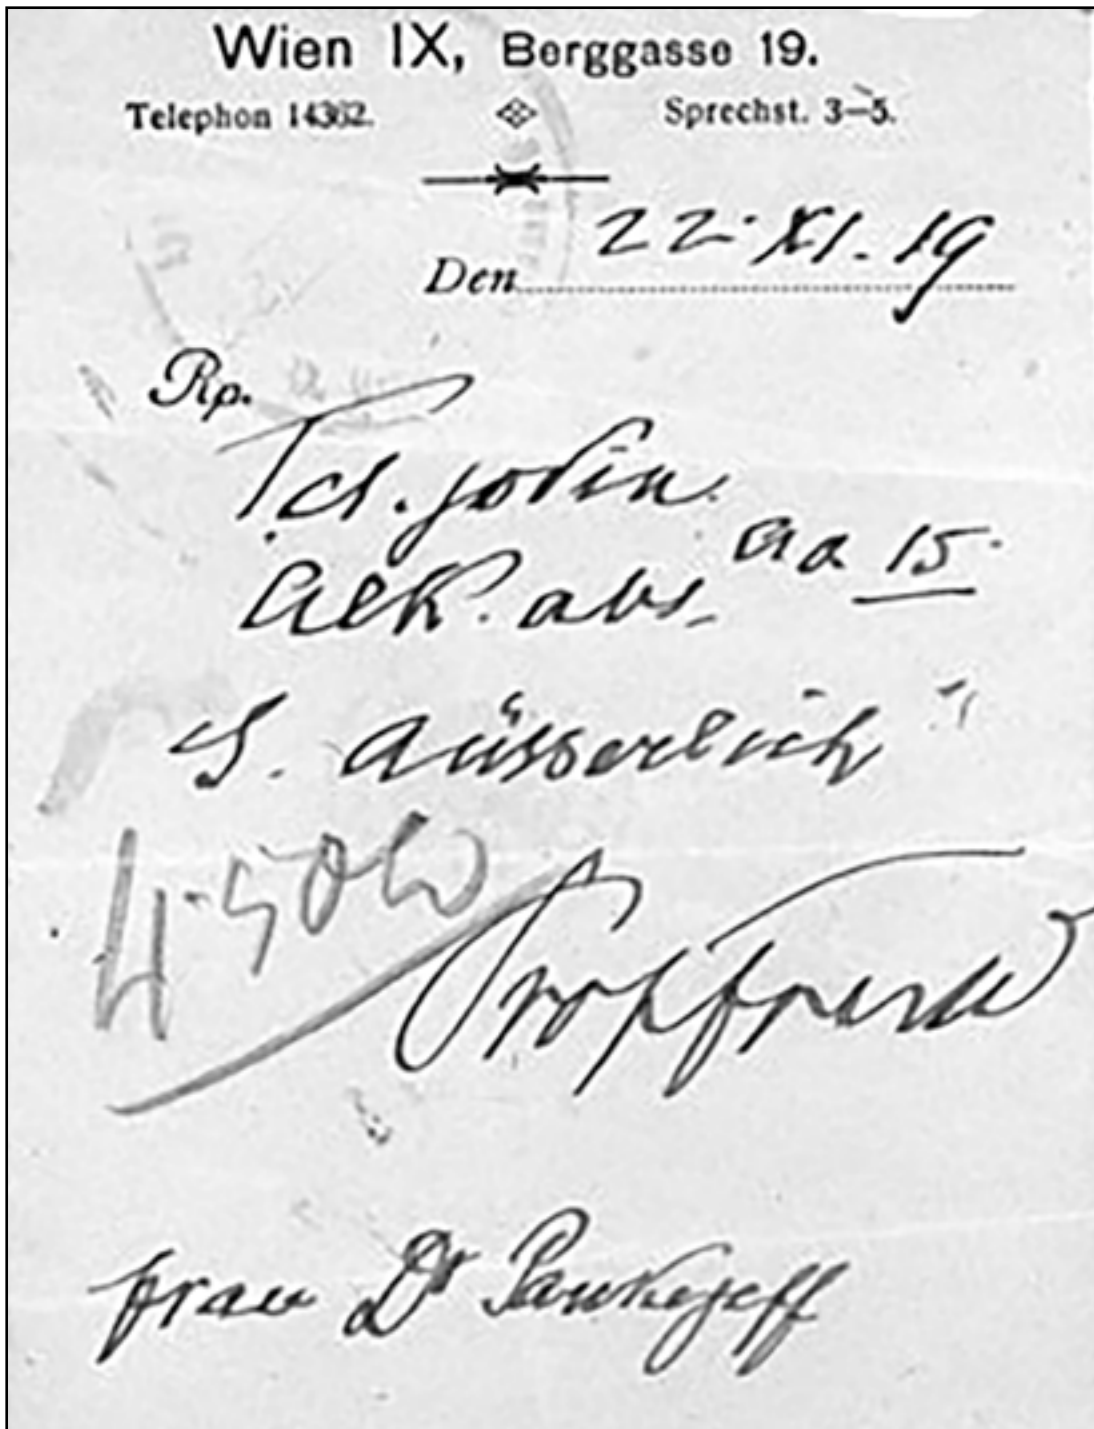 Wien IX, Berggasse 19.
Telephon 14362. Sprechst. 3–5.
Den 22·XI.19
Rp.
Tct. jodin.
Alk. abs. aa 15.
S. äusserlich
4·50
Prof Freud
Frau Dr Pankejeff